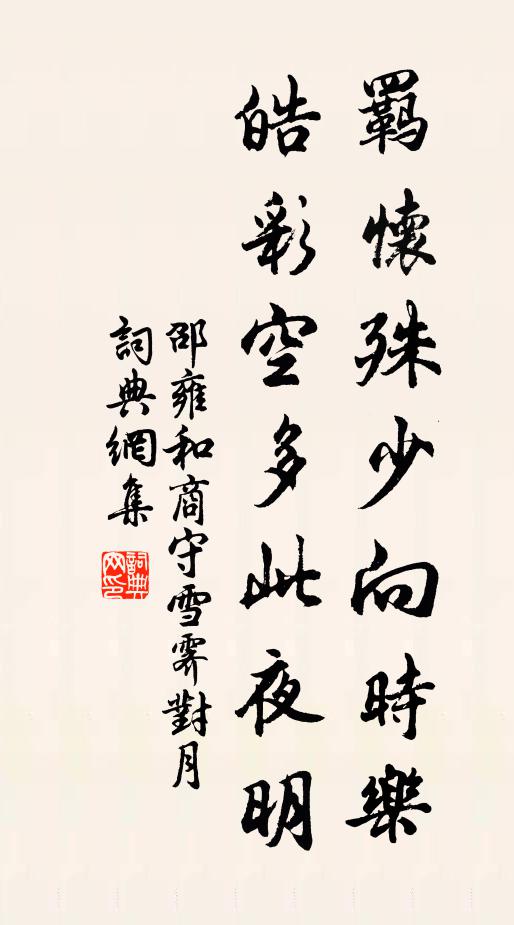 羈懷殊少向時樂
皓彩空多此夜明
邵雍和商守雪霽對月
詞典網集
詞典
网印